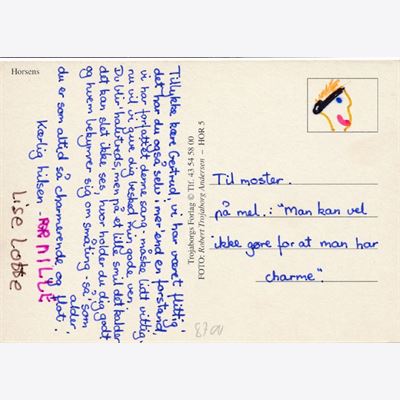 Horsens
Tillykke kære Gertrud, vi har været flittig',
det har du også selv i mer' end en forstand,
vi har forfattet denne sang - måske lidt vittig,
nu vil vi give dig besked min gode ven,
Du bli'r halvtreds, men på et lille smil det kalder
det kan slet ikke ses, hvor holder du dig godt
og hvem bekymrer sig om småting - så' som alder,
du er som altid så charmerende og flot.
Kærlig hilsen -
PER MILLE
LISE LOTTE
Trojaborgs Forlag © Tlf. 43 54 58 00
FOTO: Robert Trojaborg Andersen – HOR 5
Til moster.
på mel.: "Man kan vel
ikke gøre for at man har
charme".